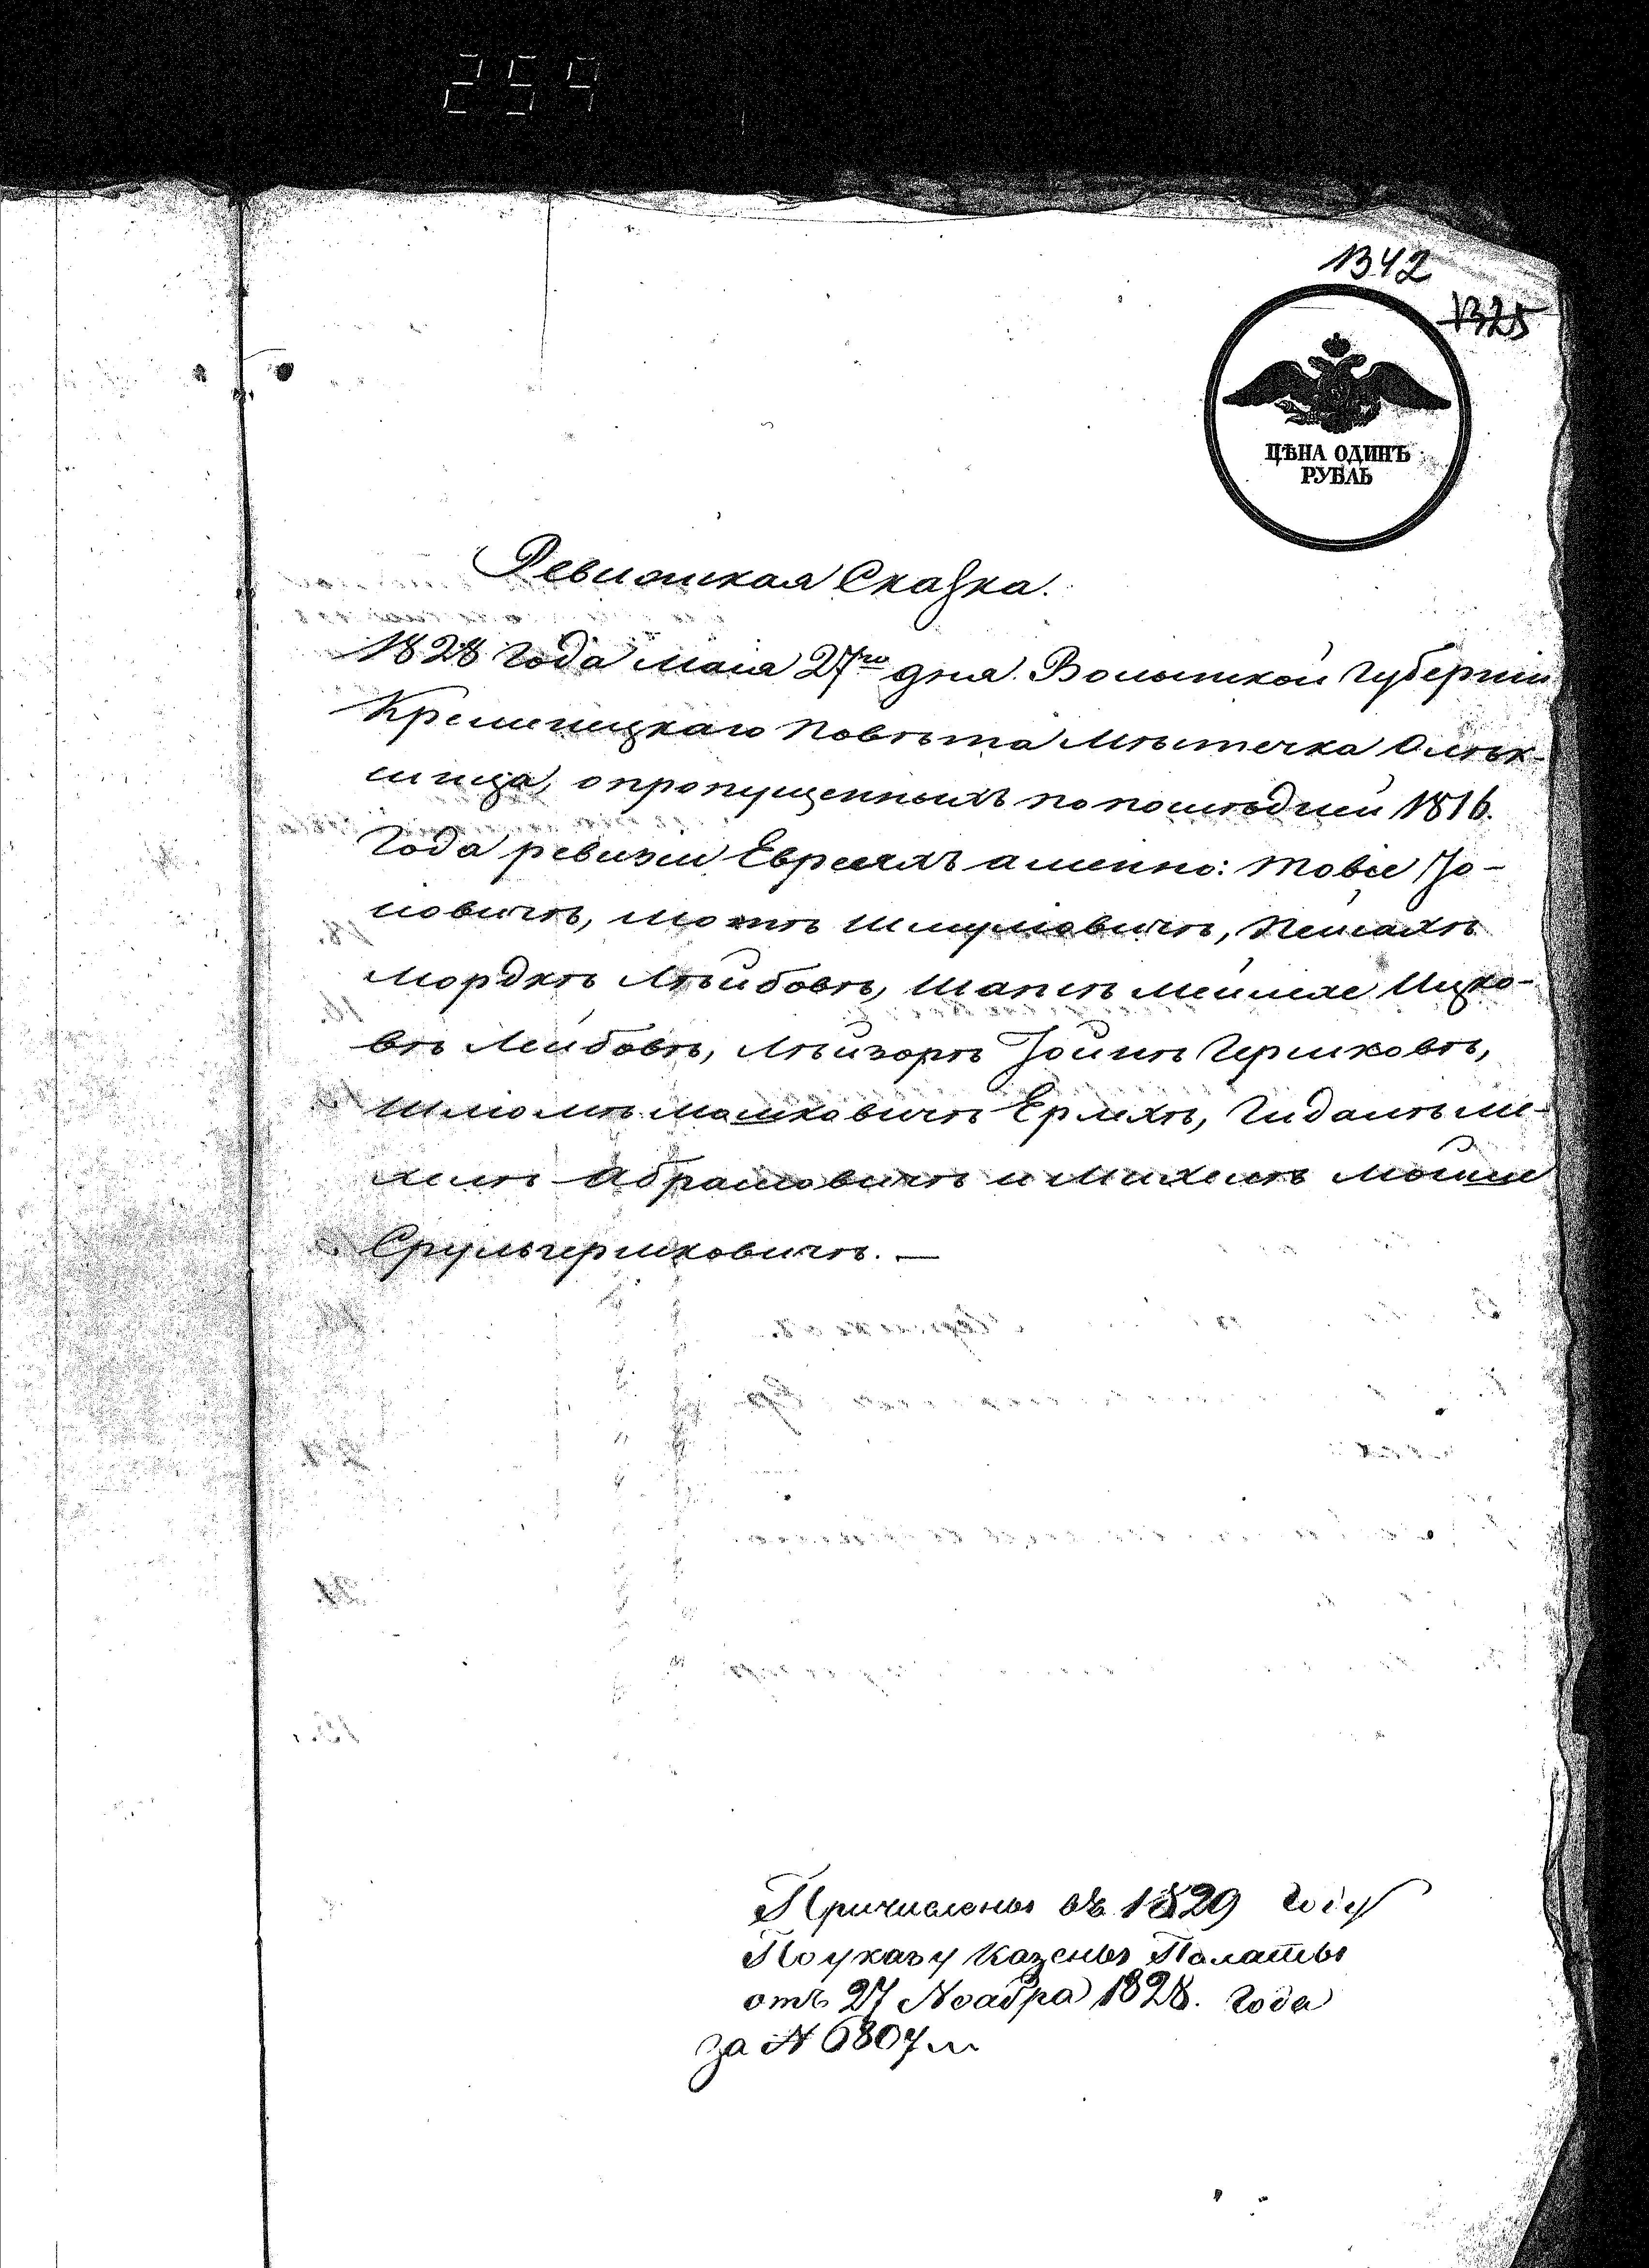 259
1342
1325
ЦѢНА ОДИНЪ
РУБЛЬ
Ревизская Сказка.
1828 года маія 27го дня. Волынской губерніи
Кременецкаго повѣта мѣстечка Олѣк-
синца, о пропущенныхъ по послѣдней 1816.
года ревизіи Евреяхъ а именно: Товіе Іо-
сіовичѣ, Мошкѣ Шмуліовичѣ, Пейсахѣ
Мордкѣ Лѣйбовѣ, Шапсѣ Мейлехе Ицко-
вѣ Лейбовѣ, Лѣйзорѣ Іойнѣ Гершковѣ,
Шліомѣ Мошковичѣ Ерлихѣ, Гидалѣ Ми-
хелѣ Абрамовичѣ и Михелѣ Мойше
Срульгершковичѣ. —
Причислены въ 1829 году
По указу Казеные Палаты
отъ 27 Ноября 1828. года
за № 6807м